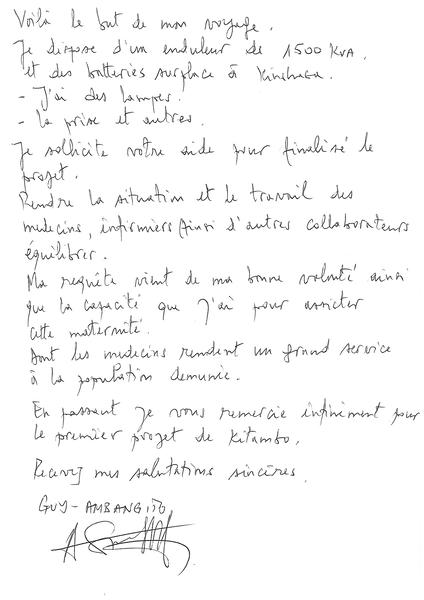 Voilà le but de mon voyage.
Je dispose d'un onduleur de 1500 KVA.
et des batteries sur place à Kinshasa.
- J'ai des lampes.
- la prise et autres.
Je sollicite votre aide pour finalisé le
projet.
Rendre la situation et le travail des
medecins, infirmiers Ainsi d'autres collaborateurs
équilibrer.
Ma requête vient de ma bonne volonté ainsi
que la capacité que j'ai pour assister
cette maternité.
Dont les medecins rendent un grand service
à la population demunie.
En passant je vous remercie infiniment pour
le premier projet de Kitambo.
Recevez mes salutations sincères.
GUY-AMBANGITO